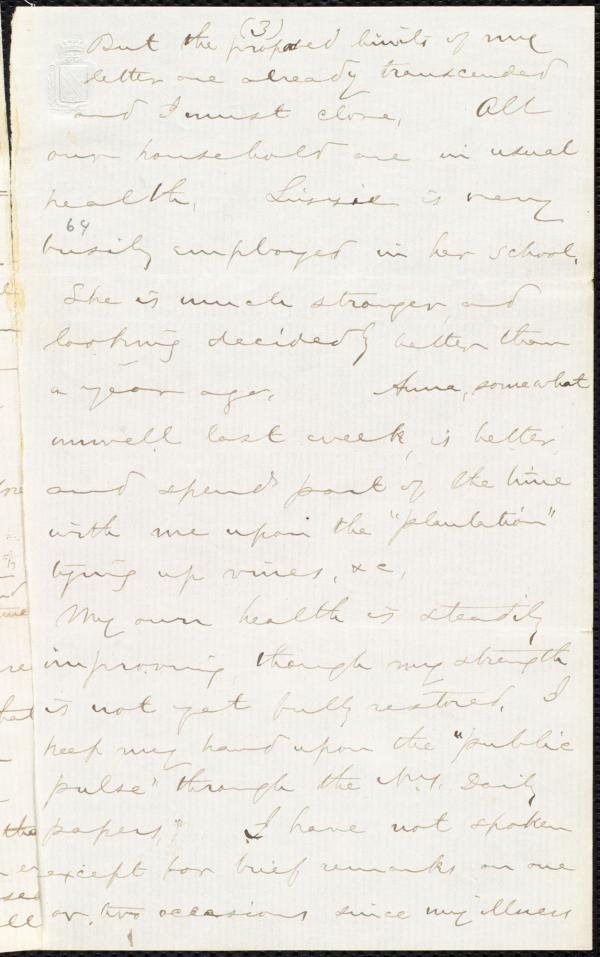 (3)
But the proposed limits of my
letter are already transcended
and I must close. All
our household are in usual
health. Lizzie is very
64
busily employed in her school.
She is much stronger, and
looking decidedly better than
a year ago. Anna, somewhat
unwell last week, is better,
and spends part of the time
with me upon the "plantation"
tying up vines, &c.
My own health is steadily
improving, though my strength
is not yet fully restored. I
keep my hand upon the "public
pulse" through the N.Y. Daily
papers. I have not spoken
except for brief remarks on one
or two occasions since my illness